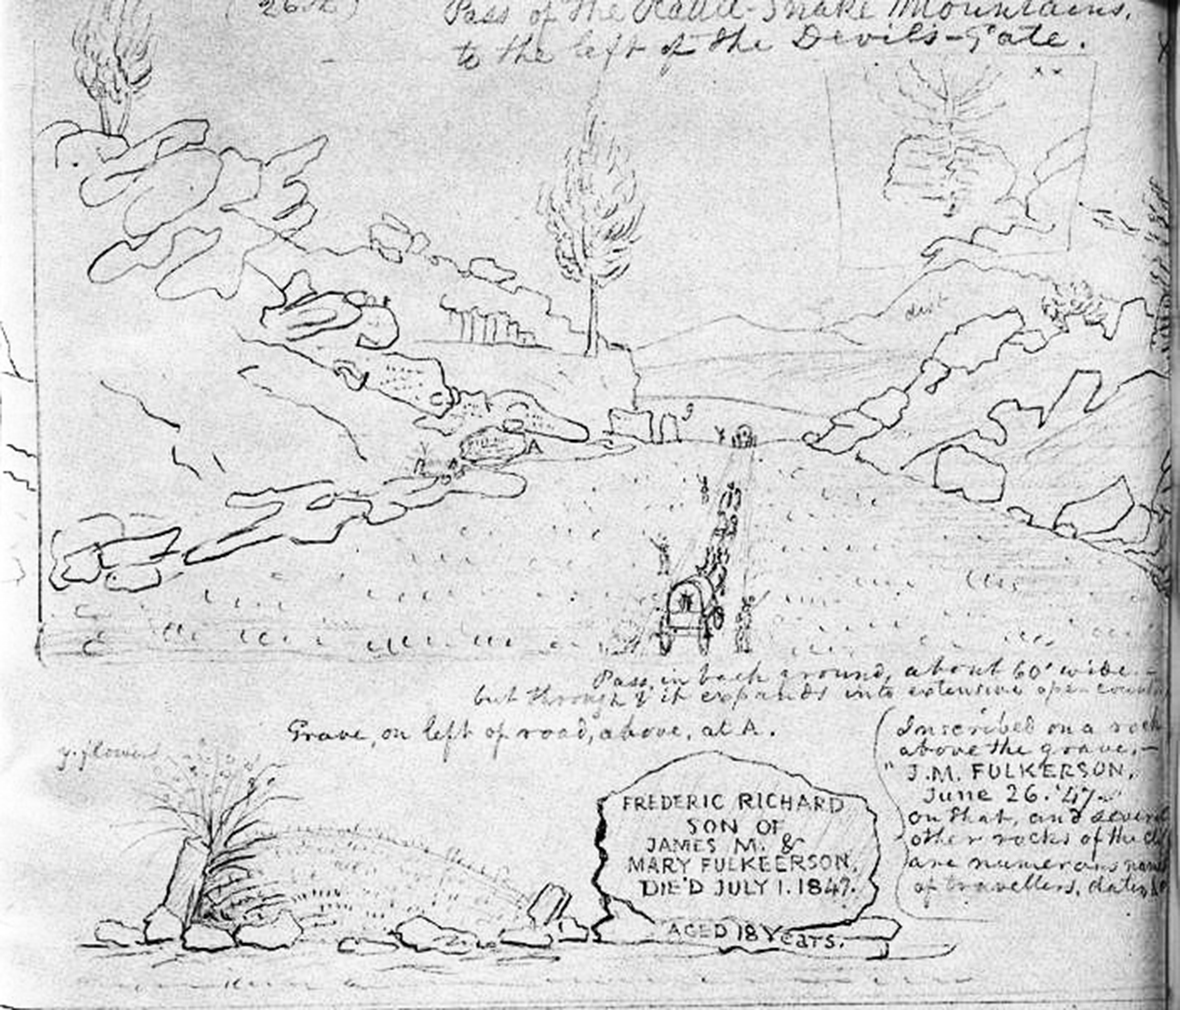 Pass of the Rattle-Snake Mountains,
to the left of the Devils-Gate.
x x
dist
A
Pass in back ground, about 60' wide.-
but through it expands into extensive open country
Grave, on left of road, above, at A.
y. flowers
FREDERIC RICHARD
SON OF
JAMES M. &
MARY FULKEERSON.
DIE'D JULY 1. 1847.
AGED 18 Years.
Inscribed on a rock
above the grave,-
"J.M. FULKERSON,
June 26. '47-
on that, and several
other rocks of the
are numerous names
of travellers, dates, &c